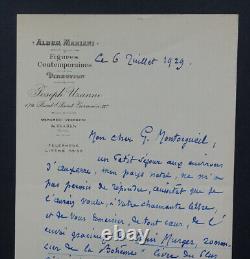 ALBUM MARIANI
Figures
Contemporaines
DIRECTION
Joseph Uzanne
172, Boulᵈ Saint Germain
MERCREDI VENDREDI
TÉLÉPHONE
Ce 6 Juillet 1929.
Mon cher G. Montorgueil,
un petit séjour aux environs
d'Auxerre, mon pays natal, ne m'a
pas permis de répondre, aussitôt que je
l'aurais voulu, à votre charmante lettre, et
de vous remercier, de tout cœur, de l'
envoi gracieux Murger, roman-
cier de la Bohème livre du plus